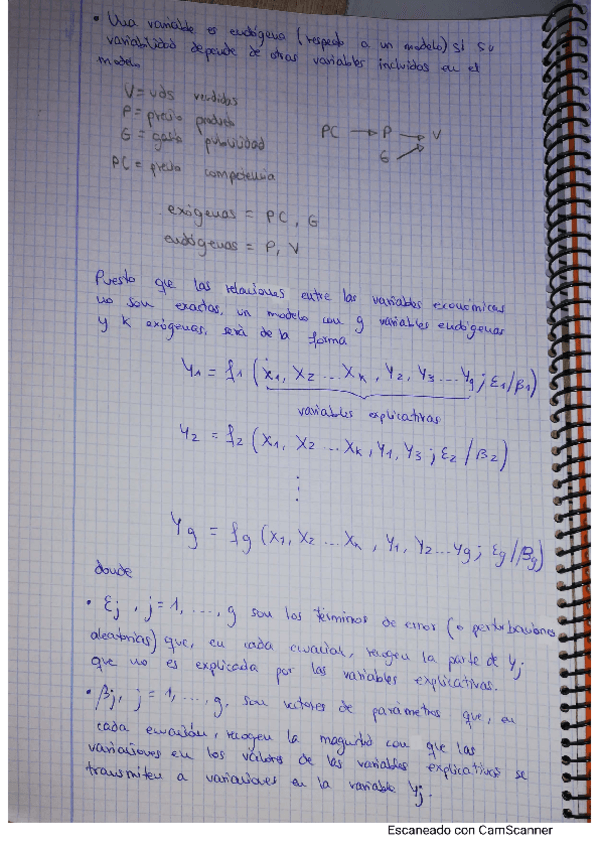 • Una variable es endógena (respecto a un modelo) si su
variabilidad depende de otras variables incluidas en el
modelo.
V = uds vendidas
P = precio producto
G = gasto publicidad
PC = precio competencia
PC → P → V
G
exógenas = PC, G
endógenas = P, V
Puesto que las relaciones entre las variables económicas
no son exactas, un modelo con g variables endógenas
y K exógenas, será de la forma
Y1 = f1 (x1, X2 ... XK, Y2, Y3 ... Yg ; ε1/β1)
variables explicativas
Y2 = f2 (X1, X2 ... XK, Y1, Y3 ; ε2 / β2)
⋮
Yg = fg (X1, X2 ... XK, Y1, Y2 ... Yg ; εg/βg)
donde
• εj, j = 1, ..., g son los términos de error (o perturbaciones
aleatorias) que, en cada ecuación, recogen la parte de Yj
que no es explicada por las variables explicativas.
• βj, j = 1, ..., g, son vectores de parámetros que, en
cada ecuación, recogen la magnitud con que las
variaciones en los valores de las variables explicativas se
transmiten a variaciones en la variable Yj.
Escaneado con CamScanner